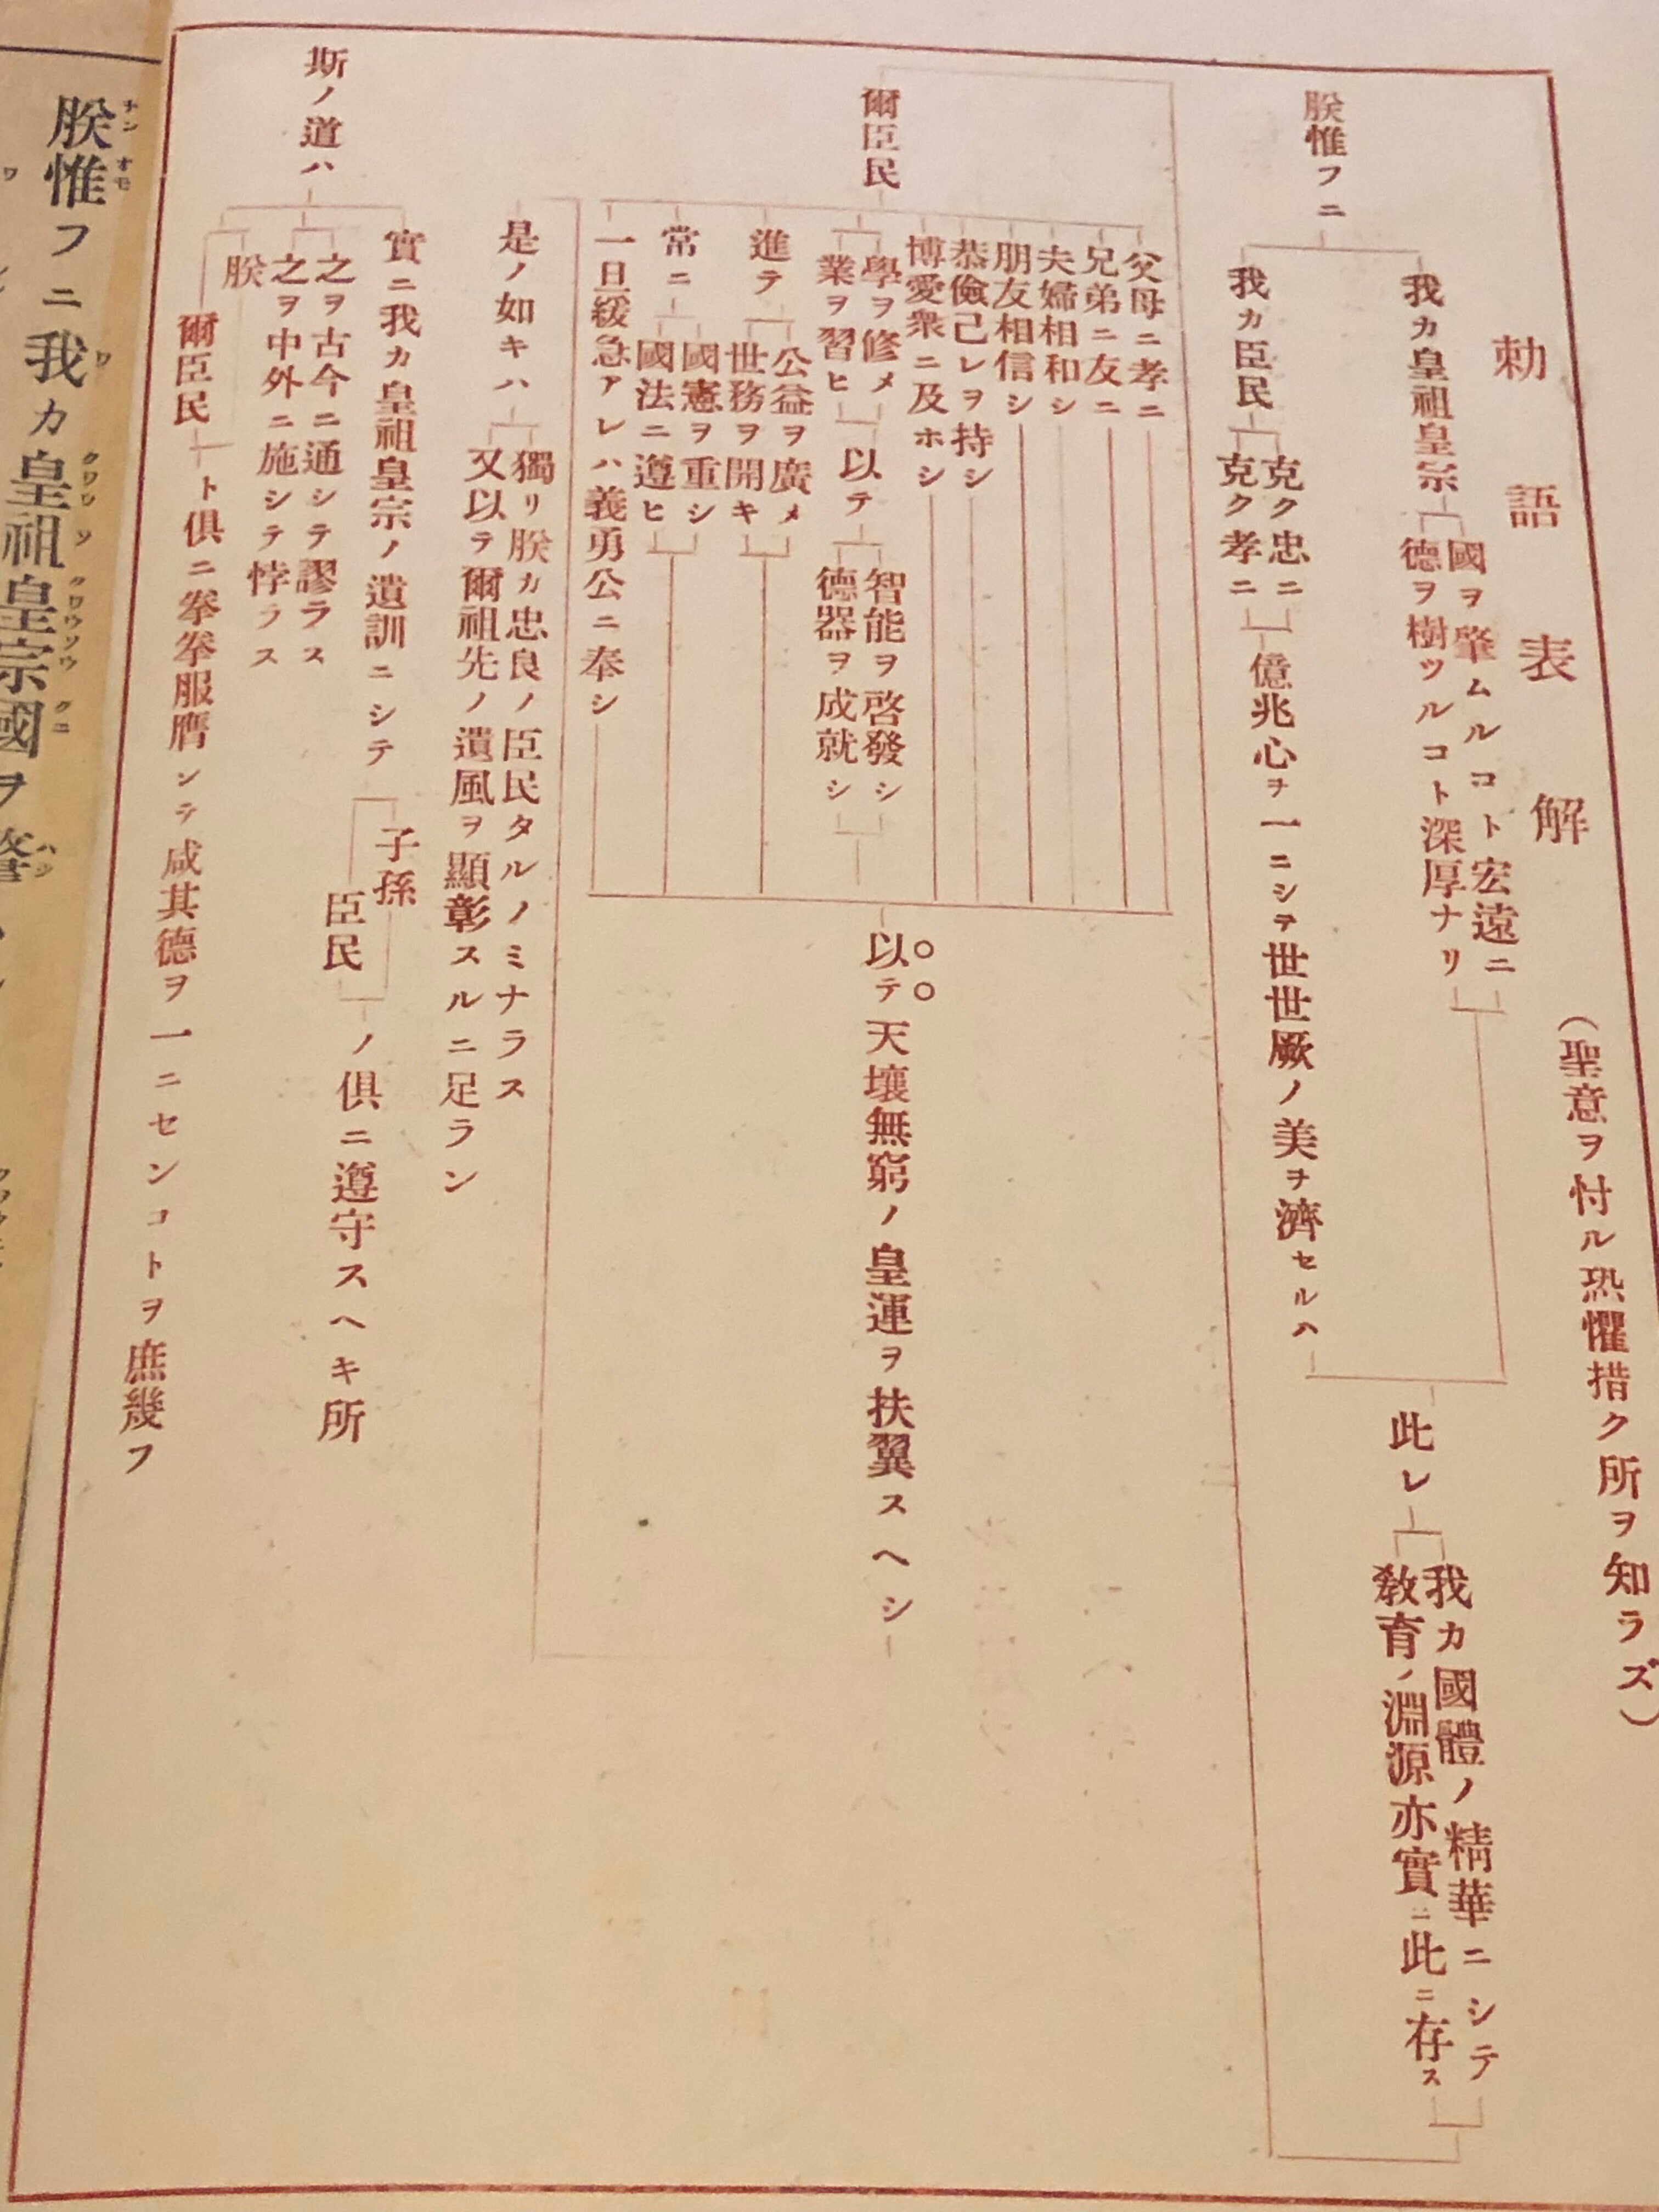 勅語表解
(聖意ヲ忖ル恐懼措ク所ヲ知ラズ)
朕惟フニ
我カ皇祖皇宗
國ヲ肇ムルコト宏遠ニ
德ヲ樹ツルコト深厚ナリ
我カ臣民
克ク忠ニ
克ク孝ニ
億兆心ヲ一ニシテ世世厥ノ美ヲ濟セルハ
此レ
我カ國體ノ精華ニシテ
敎育ノ淵源亦實ニ此ニ存ス
爾臣民
父母ニ孝ニ
兄弟ニ友ニ
夫婦相和シ
朋友相信シ
恭儉己レヲ持シ
博愛衆ニ及ホシ
學ヲ修メ
業ヲ習ヒ
以テ
智能ヲ啓發シ
德器ヲ成就シ
進テ
公益ヲ廣メ
世務ヲ開キ
常ニ
國憲ヲ重シ
國法ニ遵ヒ
一旦緩急アレハ義勇公ニ奉シ
○○
以テ天壤無窮ノ皇運ヲ扶翼スヘシ
是ノ如キハ
獨リ朕カ忠良ノ臣民タルノミナラス
又以テ爾祖先ノ遺風ヲ顯彰スルニ足ラン
斯ノ道ハ
實ニ我カ皇祖皇宗ノ遺訓ニシテ
子孫
臣民
ノ俱ニ遵守スヘキ所
之ヲ古今ニ通シテ謬ラス
之ヲ中外ニ施シテ悖ラス
朕
爾臣民
ト俱ニ拳拳服膺シテ咸其德ヲ一ニセンコトヲ庶幾フ
朕惟フニ我カ皇祖皇宗國ヲ肇